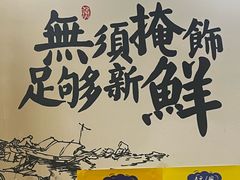 無須掩飾
足够新鮮